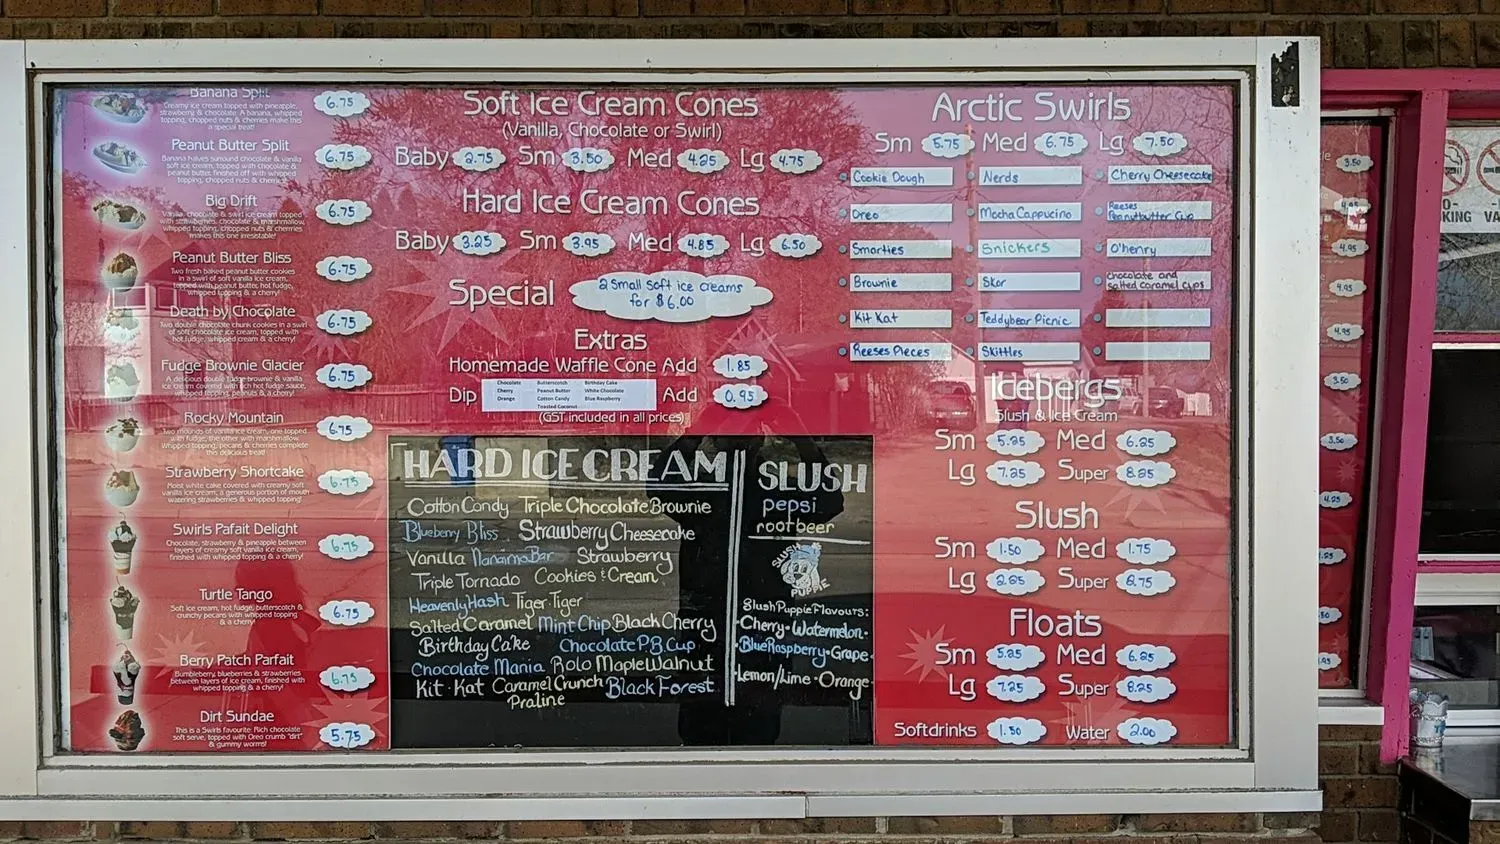 Banana Split 6.75
Creamy ice cream topped with pineapple,
strawberry & chocolate. A banana, whipped
topping, chopped nuts & cherries make this
a special treat!
Peanut Butter Split 6.75
Banana halves surround chocolate & vanilla
soft ice cream, topped with chocolate &
peanut butter, finished off with whipped
topping, chopped nuts & cherries
Big Drift 6.75
Vanilla, chocolate & swirl ice cream topped
with strawberries, chocolate & marshmallow,
whipped topping, chopped nuts & cherries
makes this one irresistible!
Peanut Butter Bliss 6.75
Two fresh baked peanut butter cookies
in a swirl of soft vanilla ice cream,
topped with peanut butter, hot fudge,
whipped topping & a cherry!
Death by Chocolate 6.75
Two double chocolate chunk cookies in a swirl
of soft chocolate ice cream, topped with
hot fudge, whipped cream & a cherry!
Fudge Brownie Glacier 6.75
A delicious double fudge brownie & vanilla
ice cream covered with rich hot fudge sauce,
whipped topping, peanuts & a cherry!
Rocky Mountain 6.75
Two mounds of vanilla ice cream, one topped
with fudge, the other with marshmallow.
Whipped topping, pecans & cherries complete
this delicious treat!
Strawberry Shortcake 6.75
Moist white cake covered with creamy soft
vanilla ice cream, a generous portion of mouth
watering strawberries & whipped topping!
Swirls Pafait Delight 6.75
Chocolate, strawberry & pineapple between
layers of creamy soft vanilla ice cream,
finished with whipped topping & a cherry!
Turtle Tango 6.75
Soft ice cream, hot fudge, butterscotch &
crunchy pecans with whipped topping
& a cherry!
Berry Patch Parfait 6.75
Bumbleberry, blueberries & strawberries
between layers of ice cream, finished with
whipped topping & a cherry!
Dirt Sundae 5.75
This is a Swirls favourite. Rich chocolate
soft serve, topped with Oreo crumb "dirt"
& gummy worms!
Soft Ice Cream Cones
(Vanilla, Chocolate or Swirl)
Baby 2.75 Sm 3.50 Med 4.25 Lg 4.75
Hard Ice Cream Cones
Baby 3.25 Sm 3.95 Med 4.85 Lg 6.50
Special 2 Small Soft ice creams
for $6.00
Extras
Homemade Waffle Cone Add 1.85
Dip Chocolate Butterscotch Birthday Cake
Cherry Peanut Butter White Chocolate
Orange Cotton Candy Blue Raspberry
Toasted Coconut
Add 0.95
(GST included in all prices)
HARD ICE CREAM
Cotton Candy Triple Chocolate Brownie
Blueberry Bliss Strawberry Cheesecake
Vanilla Nanaimo Bar Strawberry
Triple Tornado Cookies & Cream
Heavenly Hash Tiger Tiger
Salted Caramel Mint Chip Black Cherry
Birthday Cake Chocolate P.B. Cup
Chocolate Mania Rolo Maple Walnut
Kit-Kat Caramel Crunch Black Forest
Praline
SLUSH
pepsi
rootbeer
SLUSH
PUPPIE
Slush Puppie Flavours:
• Cherry • Watermelon •
• Blue Raspberry • Grape •
• Lemon/Lime • Orange •
Arctic Swirls
Sm 5.75 Med 6.75 Lg 7.50
Cookie Dough Nerds Cherry Cheesecake
Oreo Mocha Cappucino Reeses Peanutbutter Cup
Smarties Snickers O'henry
Brownie Skor Chocolate and salted caramel cups
Kit Kat Teddybear Picnic
Reeses Pieces Skittles
Icebergs
Slush & Ice Cream
Sm 5.25 Med 6.25
Lg 7.25 Super 8.25
Slush
Sm 1.50 Med 1.75
Lg 2.25 Super 2.75
Floats
Sm 5.25 Med 6.25
Lg 7.25 Super 8.25
Softdrinks 1.50 Water 2.00
3.50
4.95
4.95
4.95
4.95
3.50
3.50
4.25